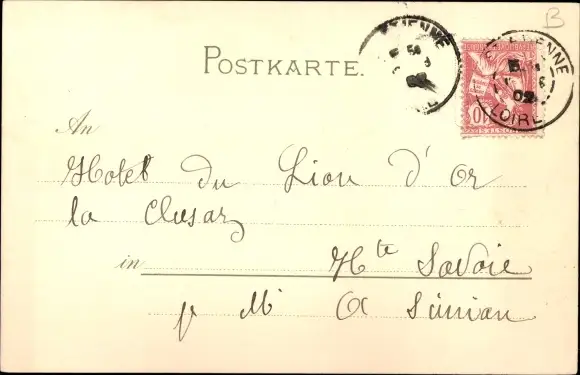 B
POSTKARTE.
ETIENNE
02
ETIENNE
02
LOIRE
10
An
Hotel du Lion d'Or
la Clusaz
in Hte Savoie
p Mr A